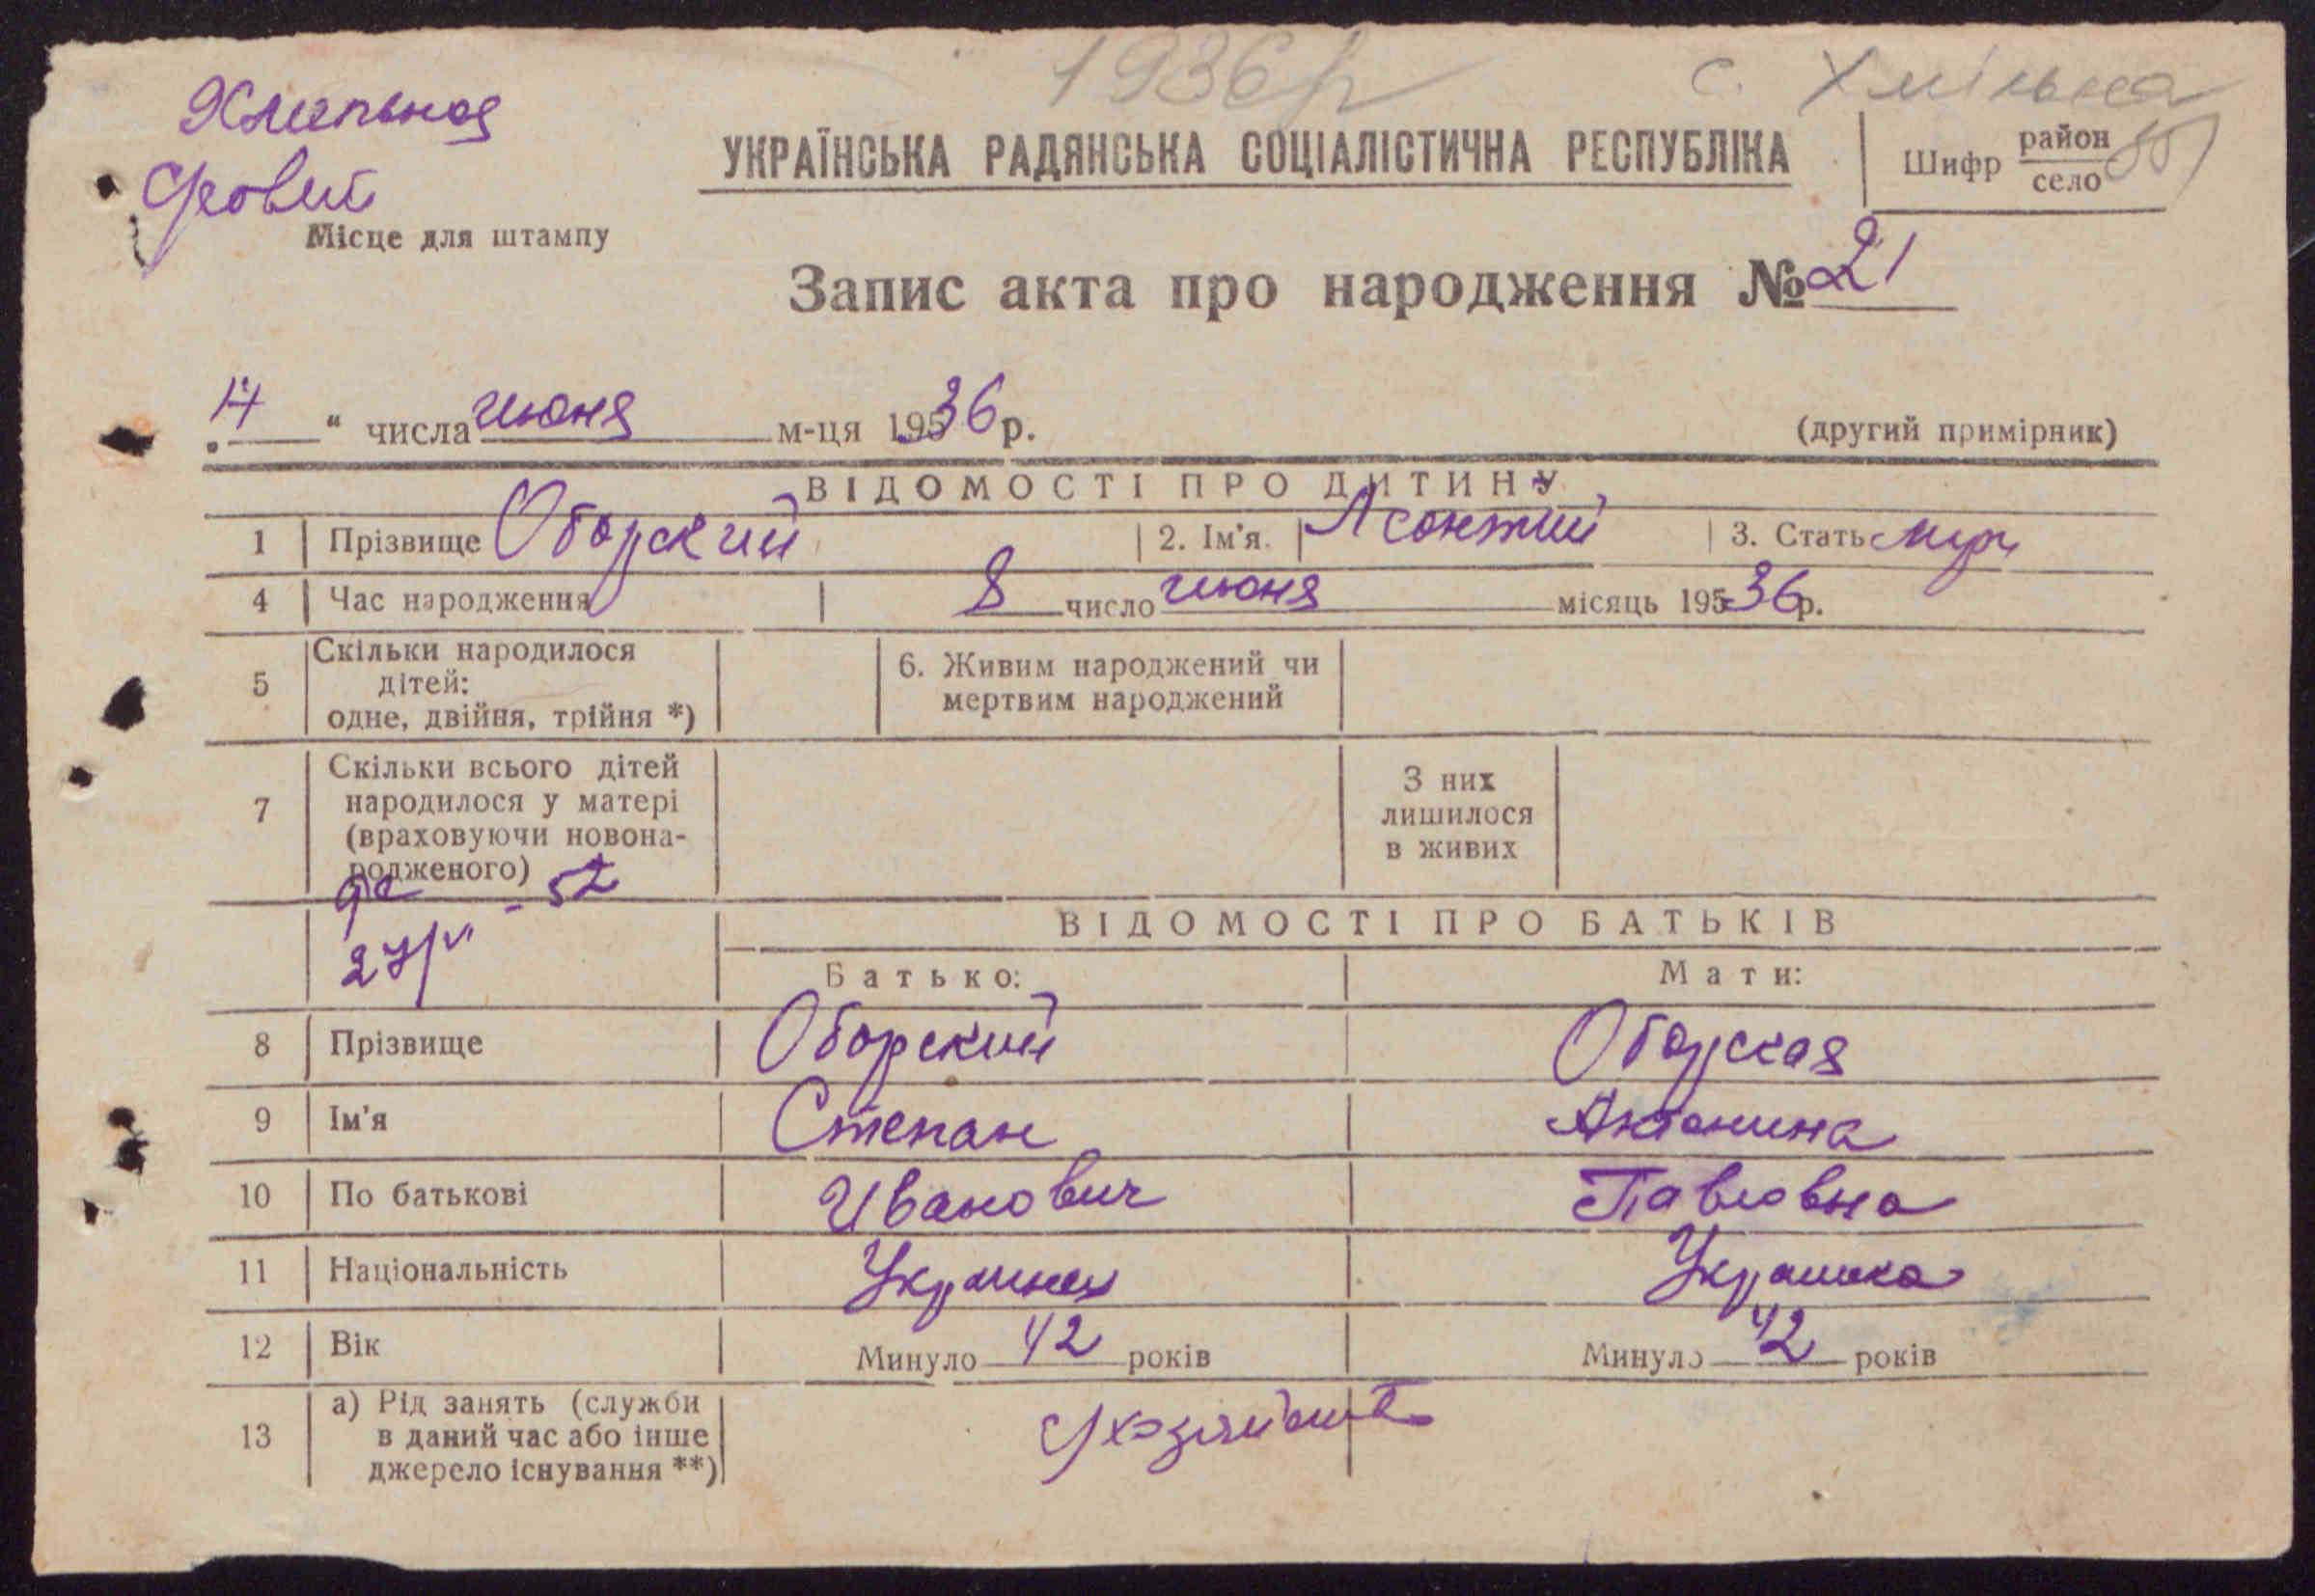 1936 р с. Хмільна
Хмильная
УКРАЇНСЬКА РАДЯНСЬКА СОЦІАЛІСТИЧНА РЕСПУБЛІКА
Шифр район
село
Місце для штампу
Запис акта про народження № 21
„ 14 “ числа июня м-ця 195 36 р. (другий примірник)
ВІДОМОСТІ ПРО ДИТИНУ
1 Прізвище Оборский 2. Ім'я Леонтий 3. Стать муж
4 Час народження 8 число июня місяць 195 36 р.
5 Скільки народилося
дітей:
одне, двійня, трійня *)
6. Живим народжений чи
мертвим народжений
7 Скільки всього дітей
народилося у матері
(враховуючи новона-
родженого)
З них
лишилося
в живих
ВІДОМОСТІ ПРО БАТЬКІВ
Батько: Мати:
8 Прізвище Оборский Оборская
9 Ім'я Степан Антонина
10 По батькові Иванович Павловна
11 Національність Украинец Украинка
12 Вік Минуло 42 років Минуло 42 років
13 а) Рід занять (служби
в даний час або інше
джерело існування **)